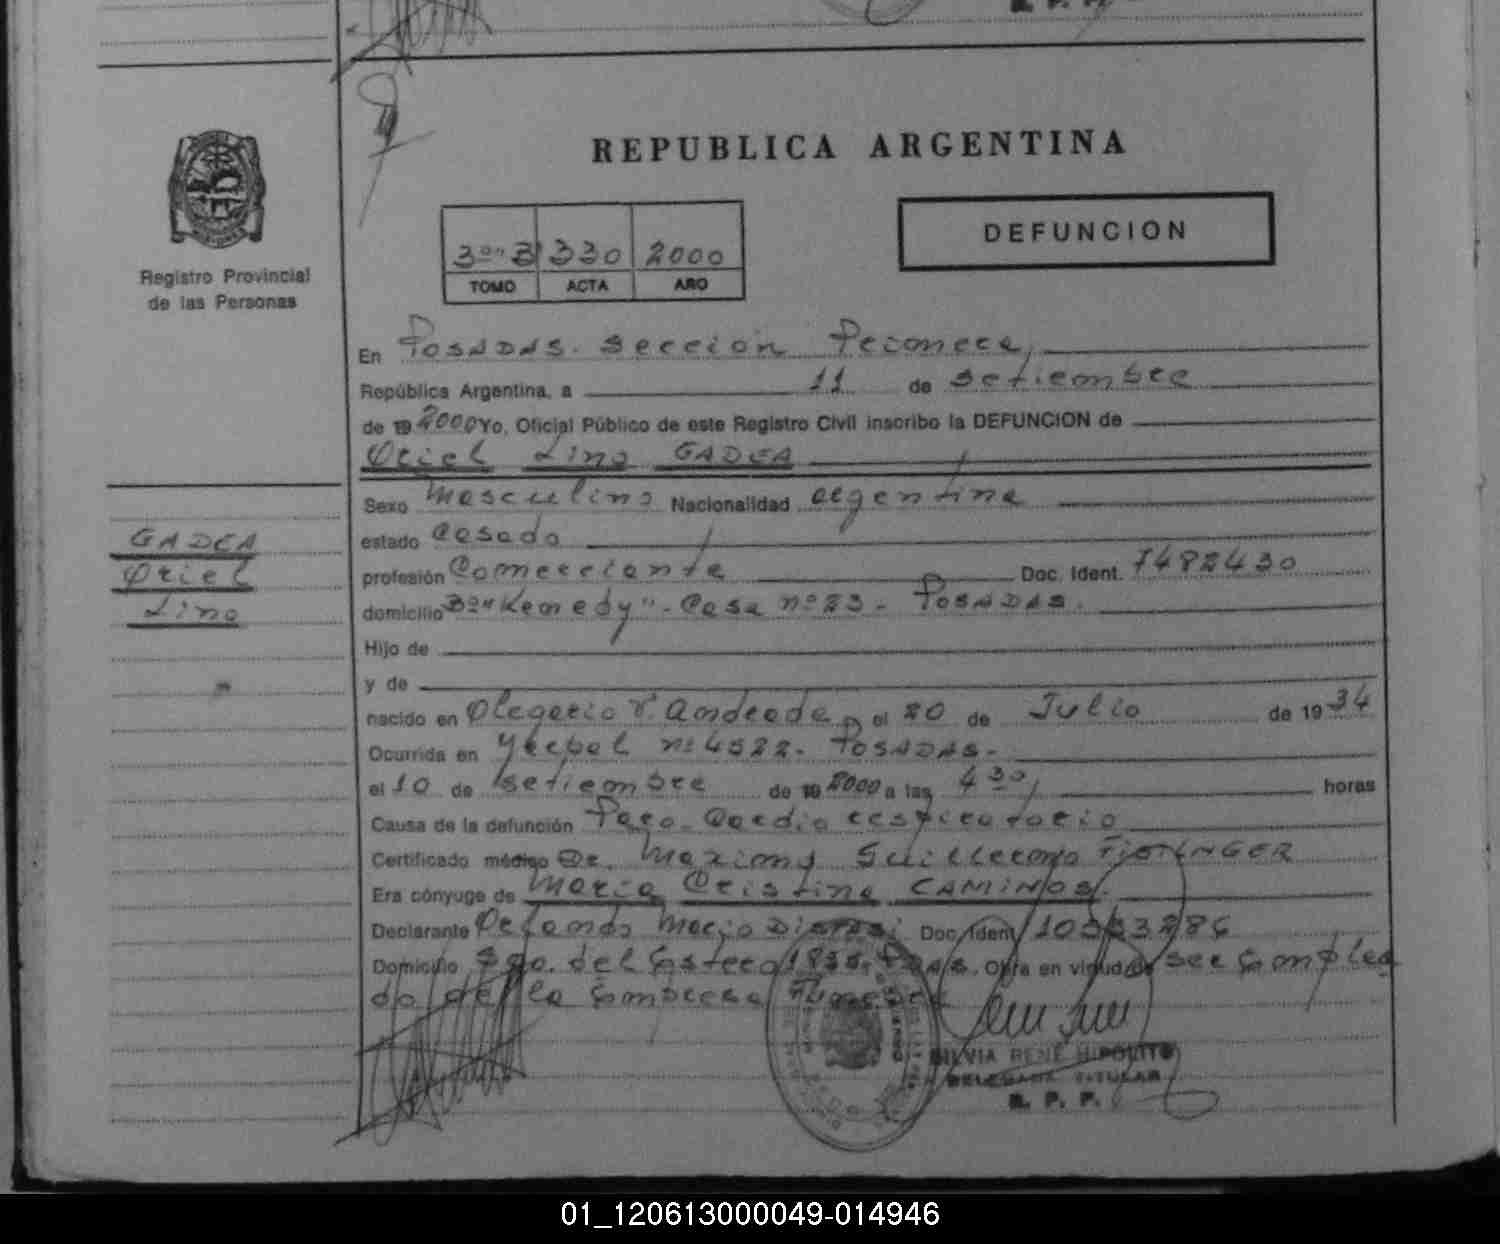 REPUBLICA ARGENTINA
DEFUNCION
3º"B" 330 2000
TOMO ACTA AÑO
Registro Provincial
de las Personas
En POSADAS. Sección Pecomeca,
República Argentina, a 11 de Setiembre
de 19 2000 Yo, Oficial Público de este Registro Civil inscribo la DEFUNCION de
Oriel Lino GADEA
Sexo Masculino Nacionalidad argentina
estado Casado
profesión Comerciante Doc. Ident. 7482430
domicilio Bº "Kemedy". Casa nº 23 - POSADAS.
Hijo de
y de
nacido en Olegario V. Andrade, el 20 de Julio de 19 34
Ocurrida en nº 4522. POSADAS.
el 10 de Setiembre de 19 2000 a las 4 30, horas
Causa de la defunción Paro. Cardio respiratorio
Certificado médico Dr. Maximo Guillermo
Era cónyuge de Maria Cristina CAMINOS.
Declarante Orlando Mario Doc. Ident.
Domicilio Sgo. del Estero 1835. Pdas. Obra en virtud de ser Emplea
do de la Empresa
GADEA
Oriel
Lino
SILVIA RENE HIPOLITO
DELEGADA TITULAR
R. P. P.
01_120613000049-014946